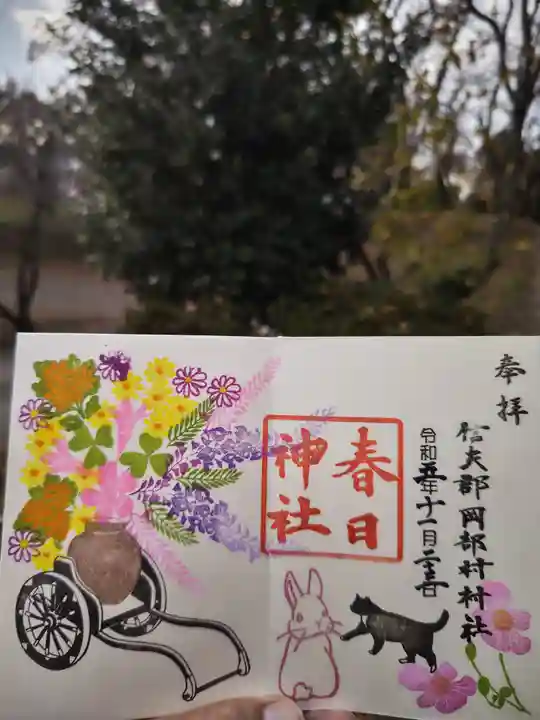 奉拝
信夫郡岡部村村社
令和五年十一月二十三日
春日
神社